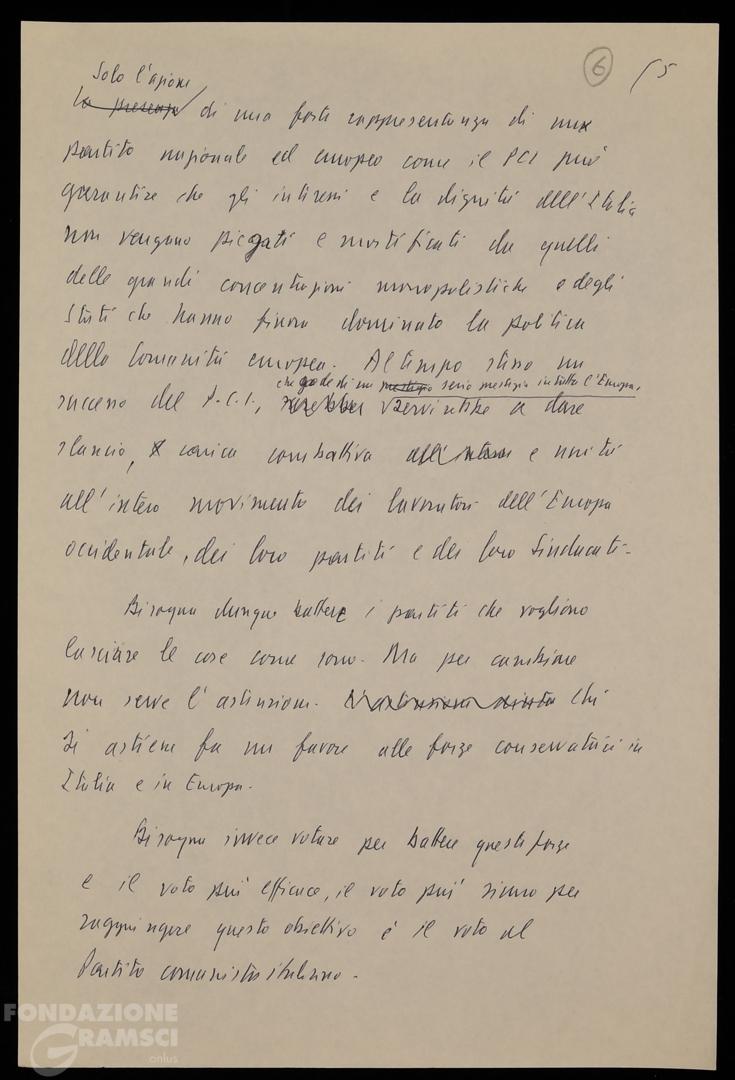 6
5
Solo l'azione
la presenza di una forte rappresentanza di un
partito nazionale ed europeo come il PCI può
garantire che gli interessi e la dignità dell'Italia
non vengano piegati e mortificati da quelli
delle grandi concentrazioni monopolistiche e degli
Stati che hanno finora dominato la politica
della Comunità europea. Al tempo stesso un
che gode di un prestigio serio prestigio in tutta l'Europa,
successo del P.C.I., servirebbe a dare
slancio, carica combattiva e unità
all'intero movimento dei lavoratori dell'Europa
occidentale, dei loro partiti e dei loro Sindacati.
Bisogna dunque battere i partiti che vogliono
lasciare le cose come sono. Ma per cambiare
non serve l'astensione. Chi
si astiene fa un favore alle forze conservatrici in
Italia e in Europa.
Bisogna invece votare per battere queste forze
e il voto più efficace, il voto più sicuro per
raggiungere questo obiettivo è il voto al
Partito comunista italiano.
FONDAZIONE
GRAMSCI
onlus